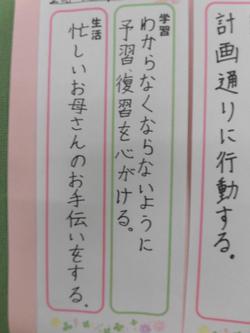 計画通りに行動する。
学習
わからなくならないように
予習、復習を心がける。
生活
忙しいお母さんのお手伝いをする。